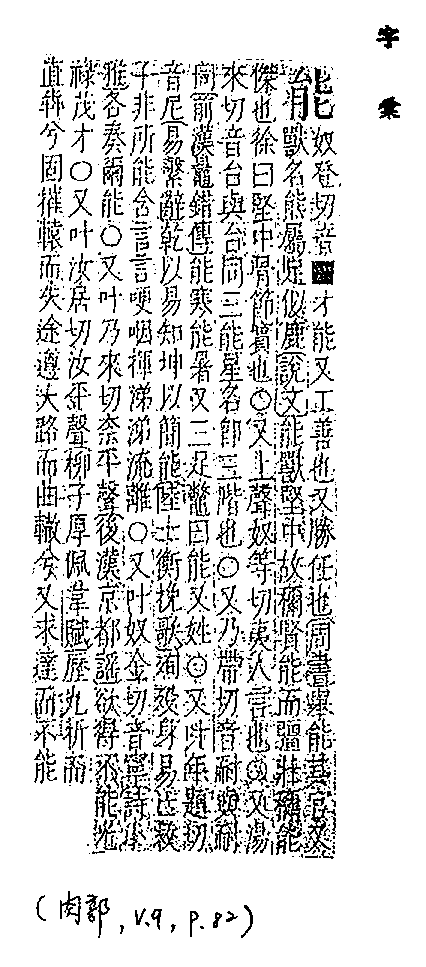 字彙
能 奴登切音才能又工善也又勝任也周書舉能其官又
獸名熊屬足似鹿說文能獸堅中故稱賢能而彊壯稱能
傑也徐曰堅中骨節實也○又上聲奴等切夷人言也○又湯
來切音台與台同三能星名即三階也○又乃帶切音耐與耐
同前漢鼂錯傳能寒能暑又三足鼈曰能又姓○又叶年題切
音尼易繫辭乾以易知坤以簡能陸士衡挽歌殉殁身易亡救
子非所能含言言哽咽揮涕涕流離○又叶奴金切音寧詩小
雅各奏爾能○又叶乃來切柰平聲後漢京都謡欲得不能光
祿茂才○又叶汝居切汝平聲柳子厚佩韋賦歷九折而
直犇兮固摧轅而失途遵大路而曲轍兮又求達而不能
(肉部, v.9, p.82)